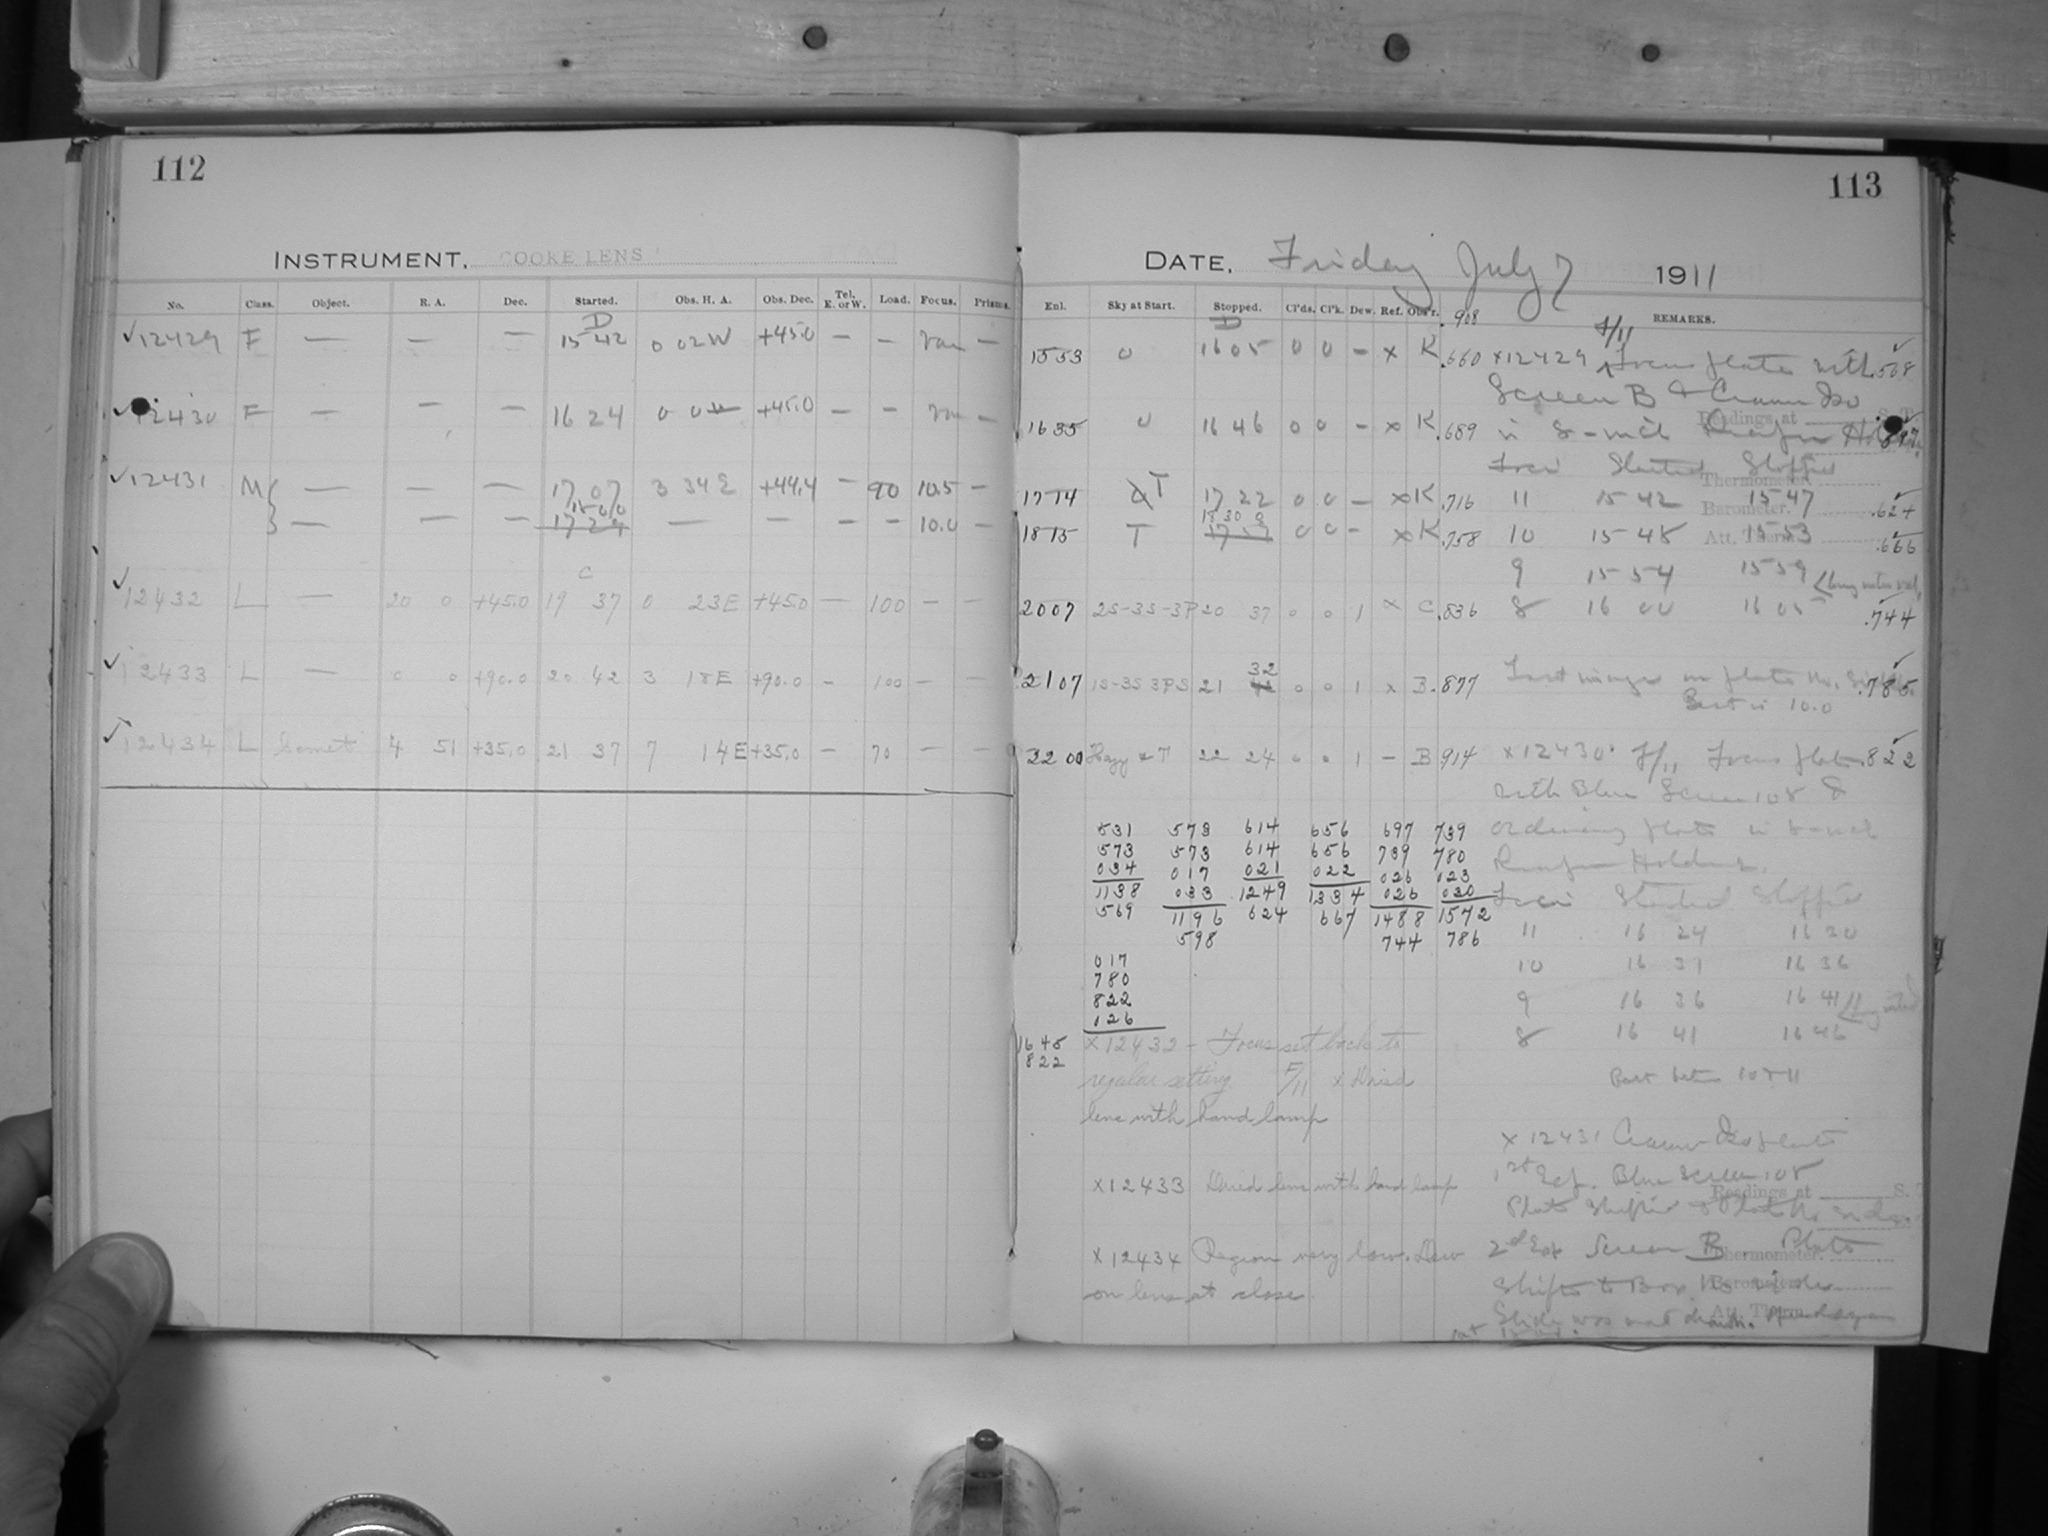 112
INSTRUMENT, COOKE LENS
No. Class. Object. R. A. Dec. Started. Obs. H. A. Obs. Dec. Tel. E. or W. Load. Focus. Prisms.
D
✓12429 F — — — 15 42 0 02W +45.0 — — Var —
✓12430 F — — — 16 24 0 0 +45.0 — —
✓12431 M { — — — 17 07 3 34E +44.4 — 90 10.5 —
— — — 17 29 — — — — 10.0 —
C
✓12432 L — 20 0 +45.0 19 37 0 23E +45.0 — 100 — —
✓12433 L — 0 0 +90.0 20 42 3 18E +90.0 — 100 — —
✓12434 L Comet 4 51 +35.0 21 37 7 14E +35.0 — 70 — —
113
DATE, Friday July 7 1911
Enl. Sky at Start. Stopped. Cl'ds. Cl'k. Dew. Ref. Obs'r. .908 REMARKS.
D
1553 0 16 05 0 0 — x K .660
1635 0 16 46 0 0 — x K .689
1714 T 17 22 0 0 — x K .716
18 30
1815 T 17 59 0 0 — x K .758
2007 2S-3S-3P 20 37 0 0 1 x C .836
32
2107 1S-3S 3PS 21 0 0 1 x B .877
2200 Hazy & T 22 24 0 0 1 — B 914
f/11
x12429 Focus plate with .568
Screen B & Cramer Iso
Readings at S. T.
in 8-inch Holder
Foci Started Stopped
Thermometer
11 15 42 15 47 .624
Barometer
10 15 48 15 53 .666
Att. Therm.
9 15 54 15 59
8 16 00 16 05 .744
Last image on plate No. .785
Best is 10.0
x12430 f/11 Focus plate .822
with Blue Screen 108 &
ordinary plate in 8-inch
Holder.
Foci Started Stopped
11 16 24 16 30
10 16 31 16 36
9 16 36 16 41
8 16 41 16 46
Best betw 10 & 11
x12431 Cramer Iso plate
1st Exp. Blue Screen 108
Readings at S. T.
Plate Shifted
2nd Exp Screen B. Plate
Thermometer.
Shifted to Box
Barometer
Slide was not drawn
Att. Therm.
531 573 614 656 697 739
573 573 614 656 739 780
034 017 021 022 026 023
1138 033 1249 1334 026 030
569 1196 624 667 1488 1572
598 744 786
017
780
822
126
1645
822
x12432 — Focus set back to
regular setting F/11 x Dried
lens with hand lamp
x12433 Dried lens with hand lamp
x12434 Region very low. Dew
on lens at close.